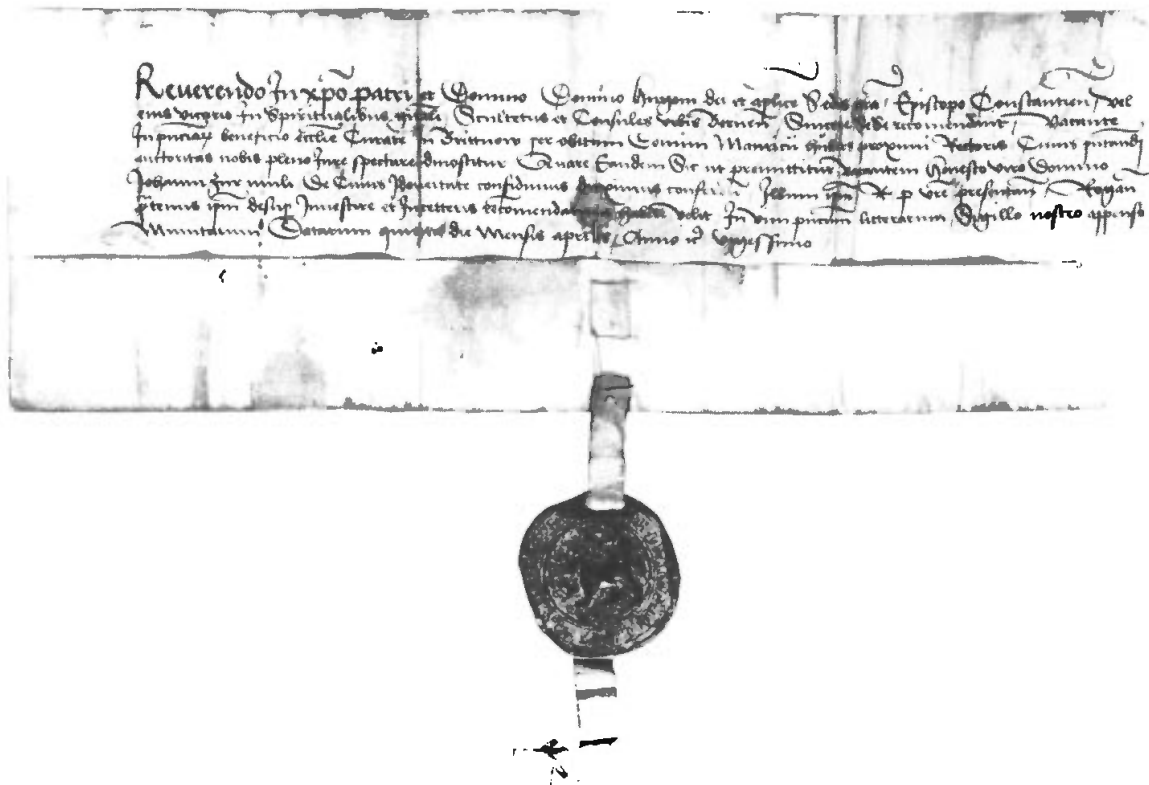 Reverendo In xp̄o patri et Domino Domino hugoni dei et aplice Sedis grā / Episcopo Constantien̄ / vel
eius vicario In Spiritualibus gn̄ali / Scultetus et Consules urbis Bernen̄ / Sincere se recomendant / Vacante
In pn̄ciar / beneficio ecclie Curate In Brittnow per obitum Domini Mauricii proximi Rectoris Cuius pn̄tandj
auctoritas nobis pleno Jure spectare dinoscitur Quare Eandem Sic ut premittitur vacantem Honesto viro Domino
Johanni De Cuius Probitate confidimus duximus conferendā Illum ipm̄ R p vrē presentam̄ / Rogan̄
ipm̄ desup Investire et Inceteris recomendatum habere velit In vim pn̄tium litterarum Sigillo nostro appenso
Munitarum Datarum quinta die Mensis aprilis / Anno vigessimo